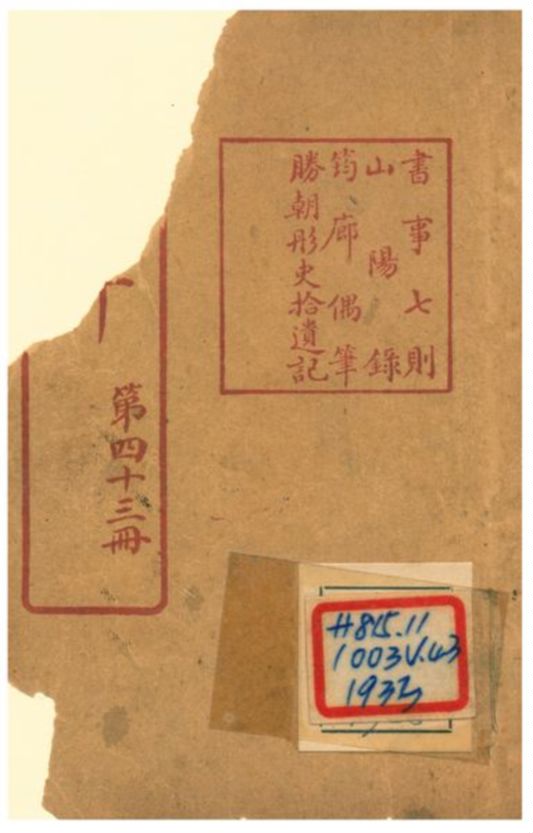 書事七則
山陽錄
筠廊偶筆
勝朝彤史拾遺記
第四十三冊
H815.11
1003V.43